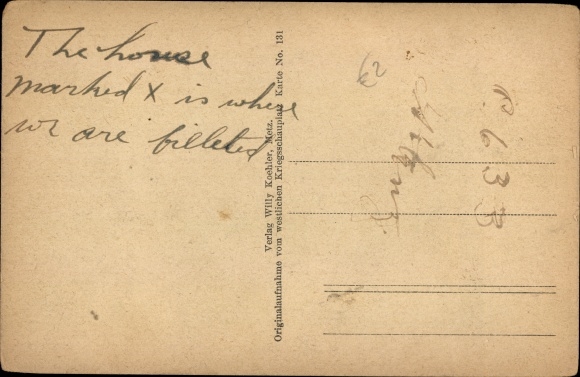 The house
marked X is where
we are billeted
Verlag Willy Koehler, Metz.
Originalaufnahme vom westlichen Kriegsschauplatz Karte No. 131